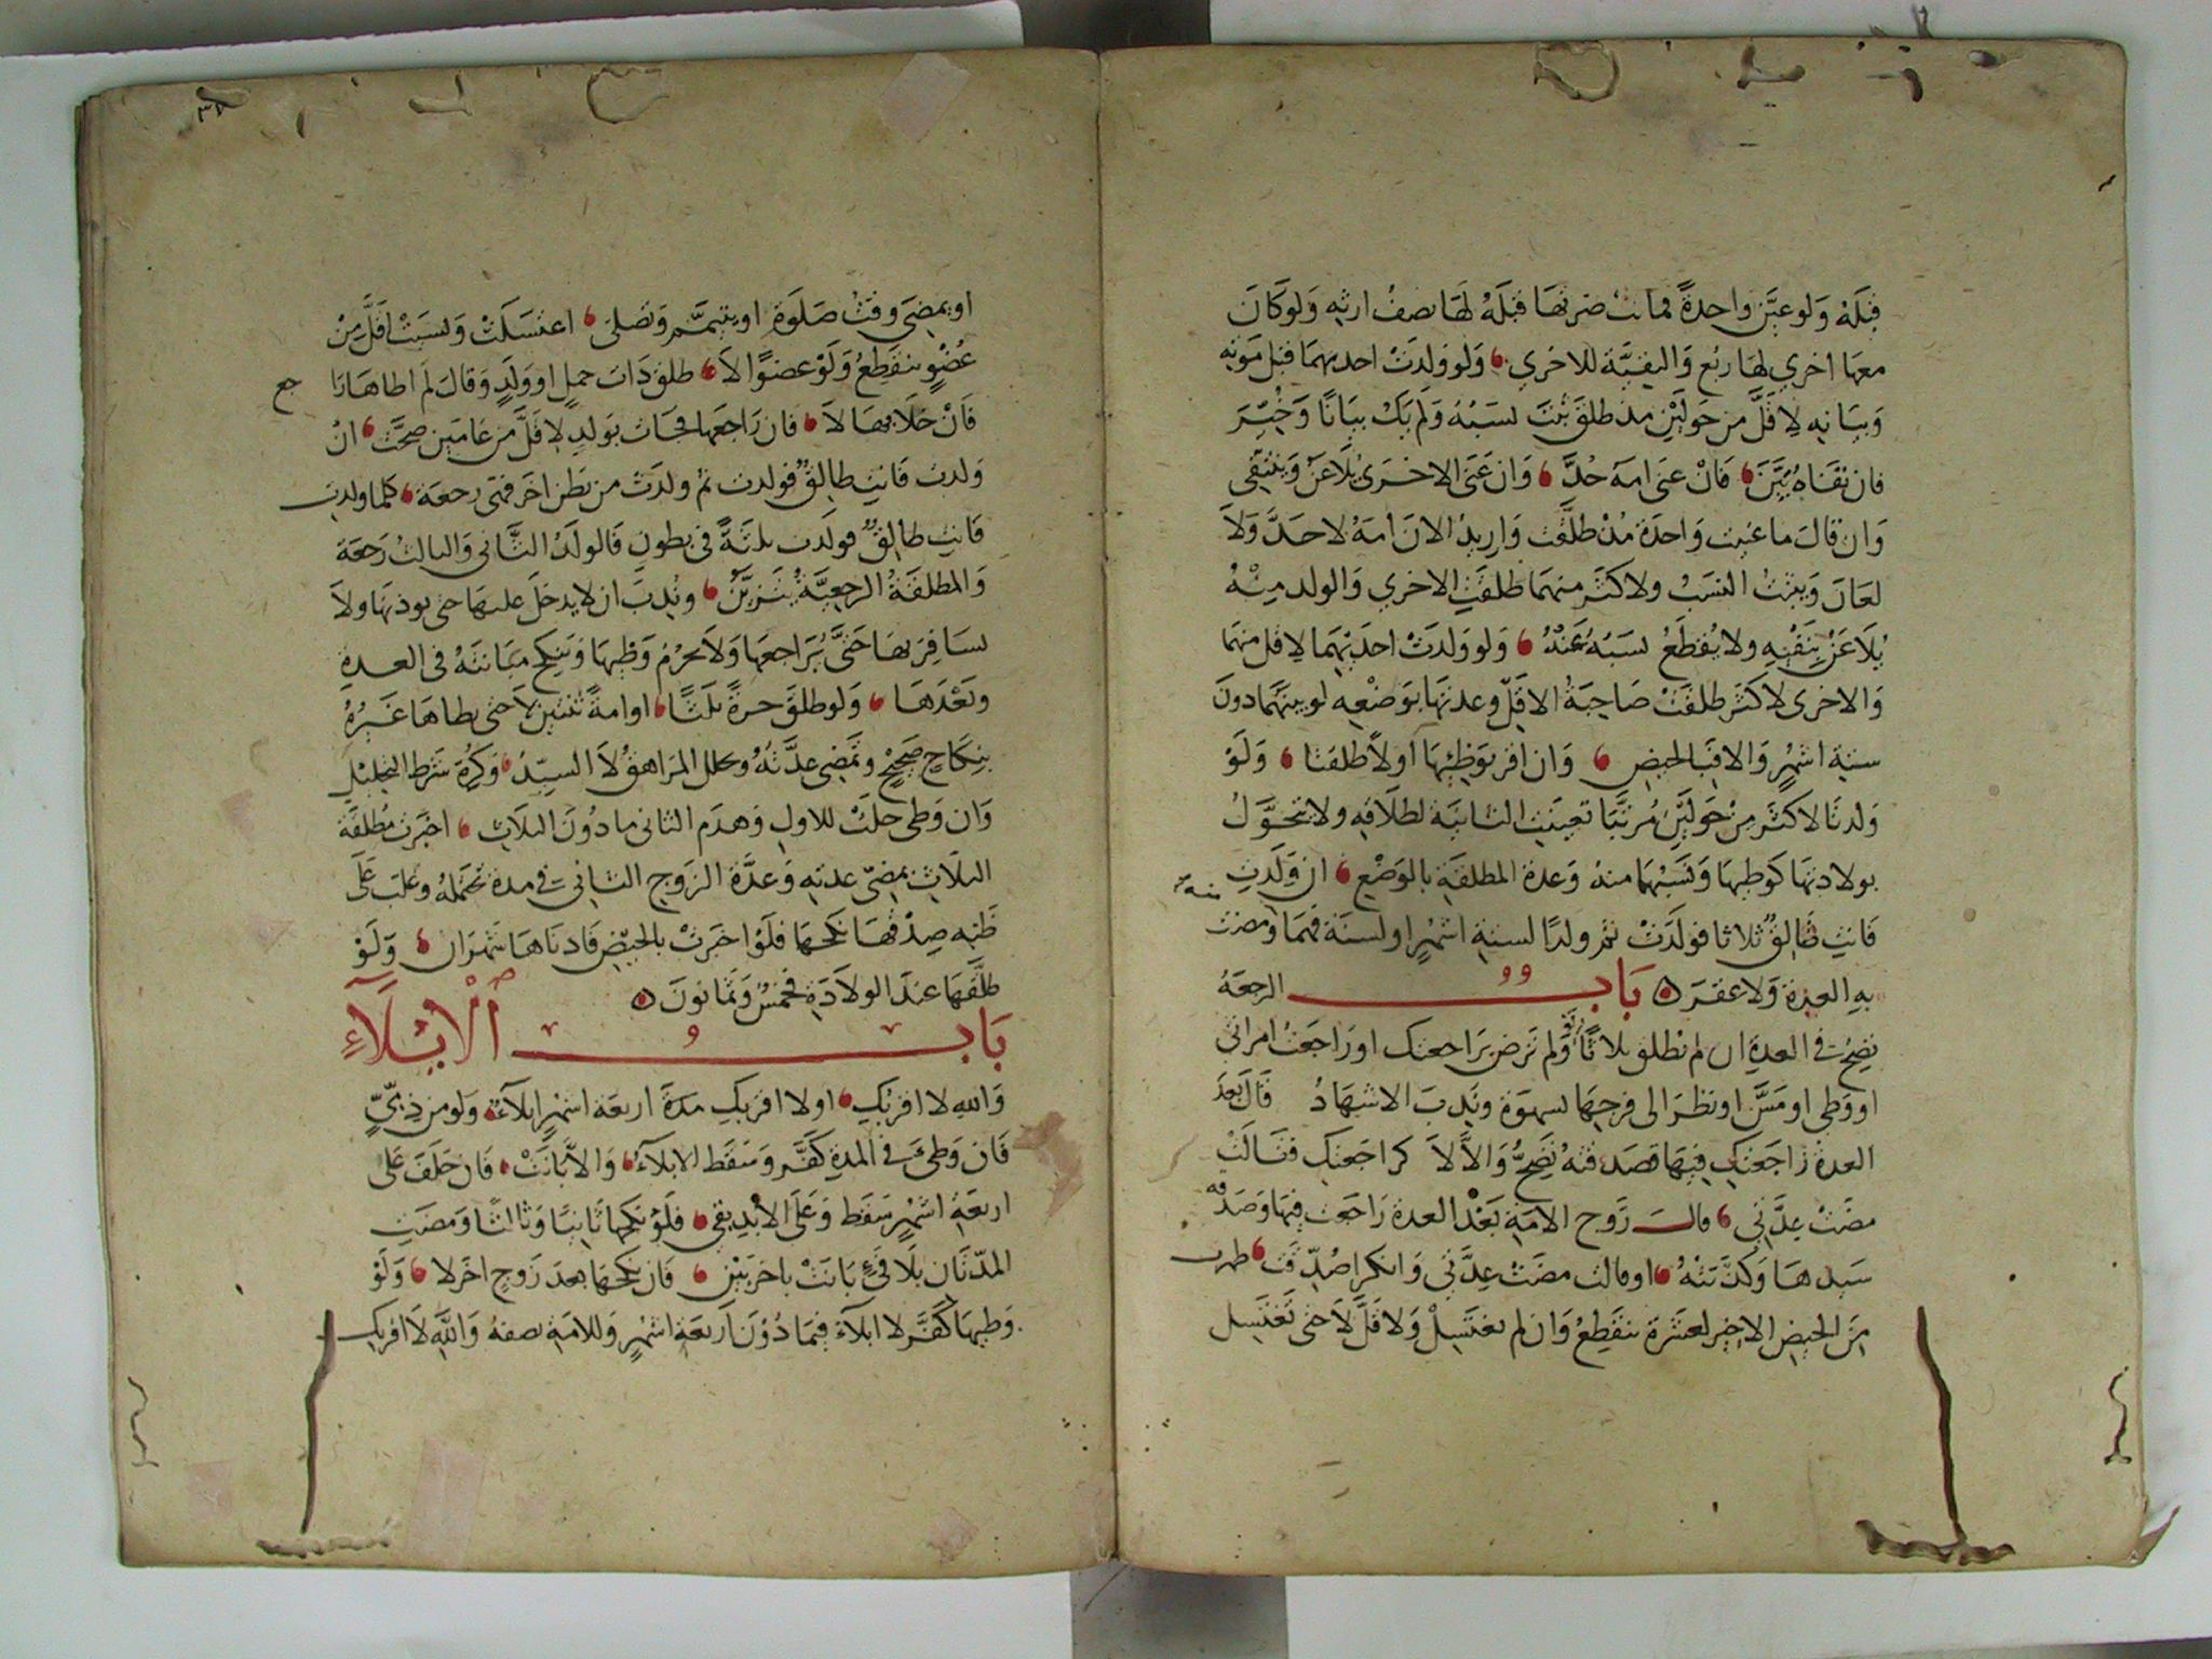 قبله ولو عين واحدة فماتت ضرتها قبله لها نصف ارثه ولو كان
معها اخرى لها ربع والبقية للاخرى ولو ولدت احديهما قبل موته
وبيانه لاقل من حولين مذ طلق ثبت نسبه ولم يك بيانا وخير
فان نفاه بين فان عنى امه حد وان عنى الاخرى يلاعن وينتفي
وان قال ما عنيت واحدة مذ طلقت واريد الان امه لا حد ولا
لعان ويثبت النسب ولاكثر منهما طلقت الاخرى والولد منه
يلاعن بنفيه ولا يقطع نسبه عنه ولو ولدت احديهما لاقل منهما
والاخرى لاكثر طلقت صاحبة الاقل وعدتها بوضعه لو بينهما دون
ستة اشهر والا فبالحيض وان اقر بوطئها اولا طلقتا ولو
ولدتا لاكثر من حولين مرتبا تعينت الثانية لطلاقه ولا يتحول
بولادتها كوطيها ونسبهما منه وعدة المطلقة بالوضع ان ولدت
فانت طالق ثلاثا فولدت ثم ولدا لستة اشهر او لسنة فهما ومضت
به العدة ولا عقر باب الرجعة
تصح في العدة ان لم تطلق ثلاثا ولو لم ترض براجعتك او راجعت امراتي
او وطي او مس او نظر الى فرجها بشهوة وندب الاشهاد قال بعد
العدة راجعتك فيها فصدقته تصح والا لا كراجعتك فقالت
مضت عدتي قال زوج الامة بعد العدة راجعت فيها وصدقه
سيدها وكذبته او قالت مضت عدتي وانكرا صدقت طهرت
من الحيض الاخير لعشرة تنقطع وان لم تغتسل ولاقل لا حتى تغتسل
او يمضي وقت صلوة او يتيمم وتصلى اغتسلت ونسيت اقل من
عضو تنقطع ولو عضوا لا طلق ذات حمل او ولد وقال لم اطاها را
جع
فان خلا بها لا فان راجعها فجات بولد لاقل من عامين صحت ان
ولدت فانت طالق فولدت ثم ولدت من بطن اخر فهى رجعة كلما ولدت
فانت طالق فولدت ثلثة في بطون فالولد الثاني والثالث رجعة
والمطلقة الرجعية تتزين وندب ان لا يدخل عليها حتى يوذنها ولا
يسافر بها حتى يراجعها ولا يحرم وطيها وينكح مبانته في العدة
وبعدها ولو طلق حرة ثلثا او امة ثنتين لا حتى يطاها غيره
بنكاح صحيح وتمضى عدته وحلل المراهق لا السيد وكره شرط التحليل
وان وطى حلت للاول وهدم الثاني ما دون الثلاث اخبرت مطلقة
الثلاث بمضي عدته وعدة الزوج الثاني في مدة تحتمله وغلب على
ظنه صدقها نكحها فلو اخبرت بالحيض فادناها شهران ولو
طلقها عند الولادة فخمس وثمانون
باب الايلاء
والله لا اقربك او لا اقربك مدة اربعة اشهر ايلاء ولو من ذمي
فان وطئ في المدة كفر وسقط الايلاء والا بانت فان حلف على
اربعة اشهر سقط وعلى الابد بقي فلو نكحها ثانيا وثالثا ومضت
المدتان بلا فئ بانت باخريين فان نكحها بعد زوج اخر لا ولو
وطيها كفر لا ايلاء فيما دون اربعة اشهر وللامة نصفه والله لا اقربك